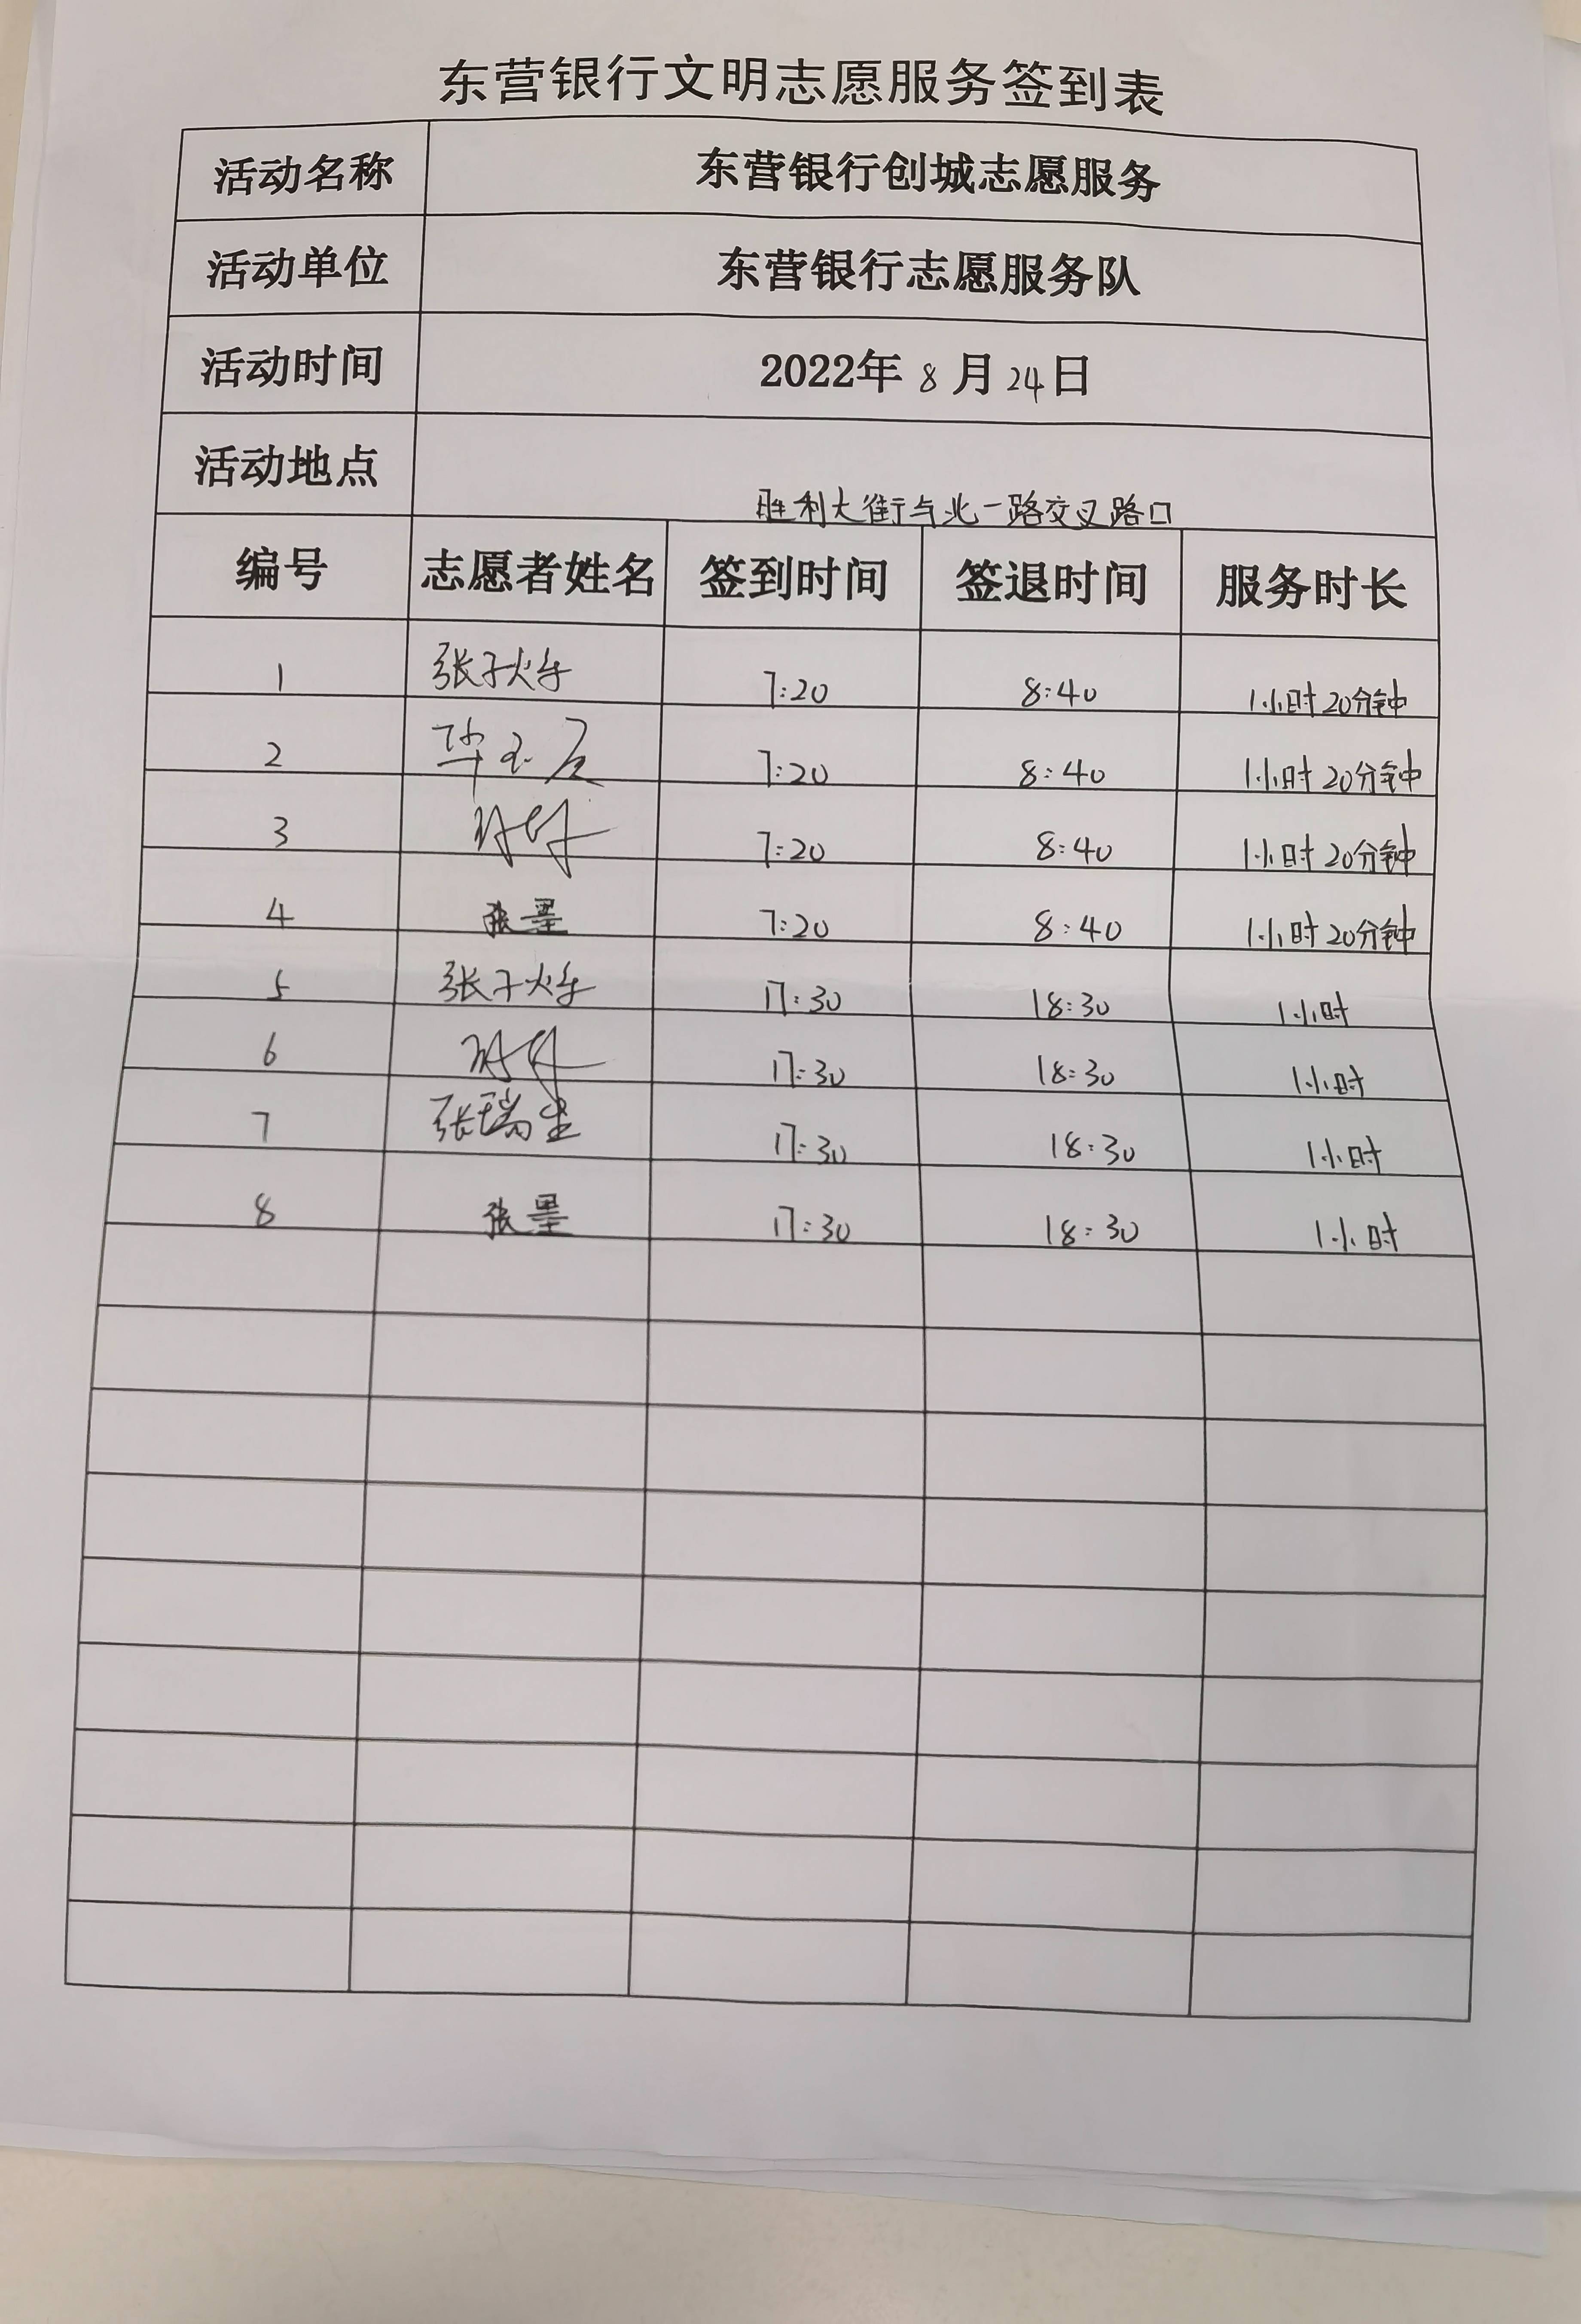 东营银行文明志愿服务签到表
活动名称 东营银行创城志愿服务
活动单位 东营银行志愿服务队
活动时间 2022年 8 月 24 日
活动地点 胜利大街与北一路交叉路口
编号 志愿者姓名 签到时间 签退时间 服务时长
1 张子烨 7:20 8:40 1小时20分钟
2 7:20 8:40 1小时20分钟
3 7:20 8:40 1小时20分钟
4 张墨 7:20 8:40 1小时20分钟
5 张子烨 17:30 18:30 1小时
6 17:30 18:30 1小时
7 张瑞 17:30 18:30 1小时
8 张墨 17:30 18:30 1小时